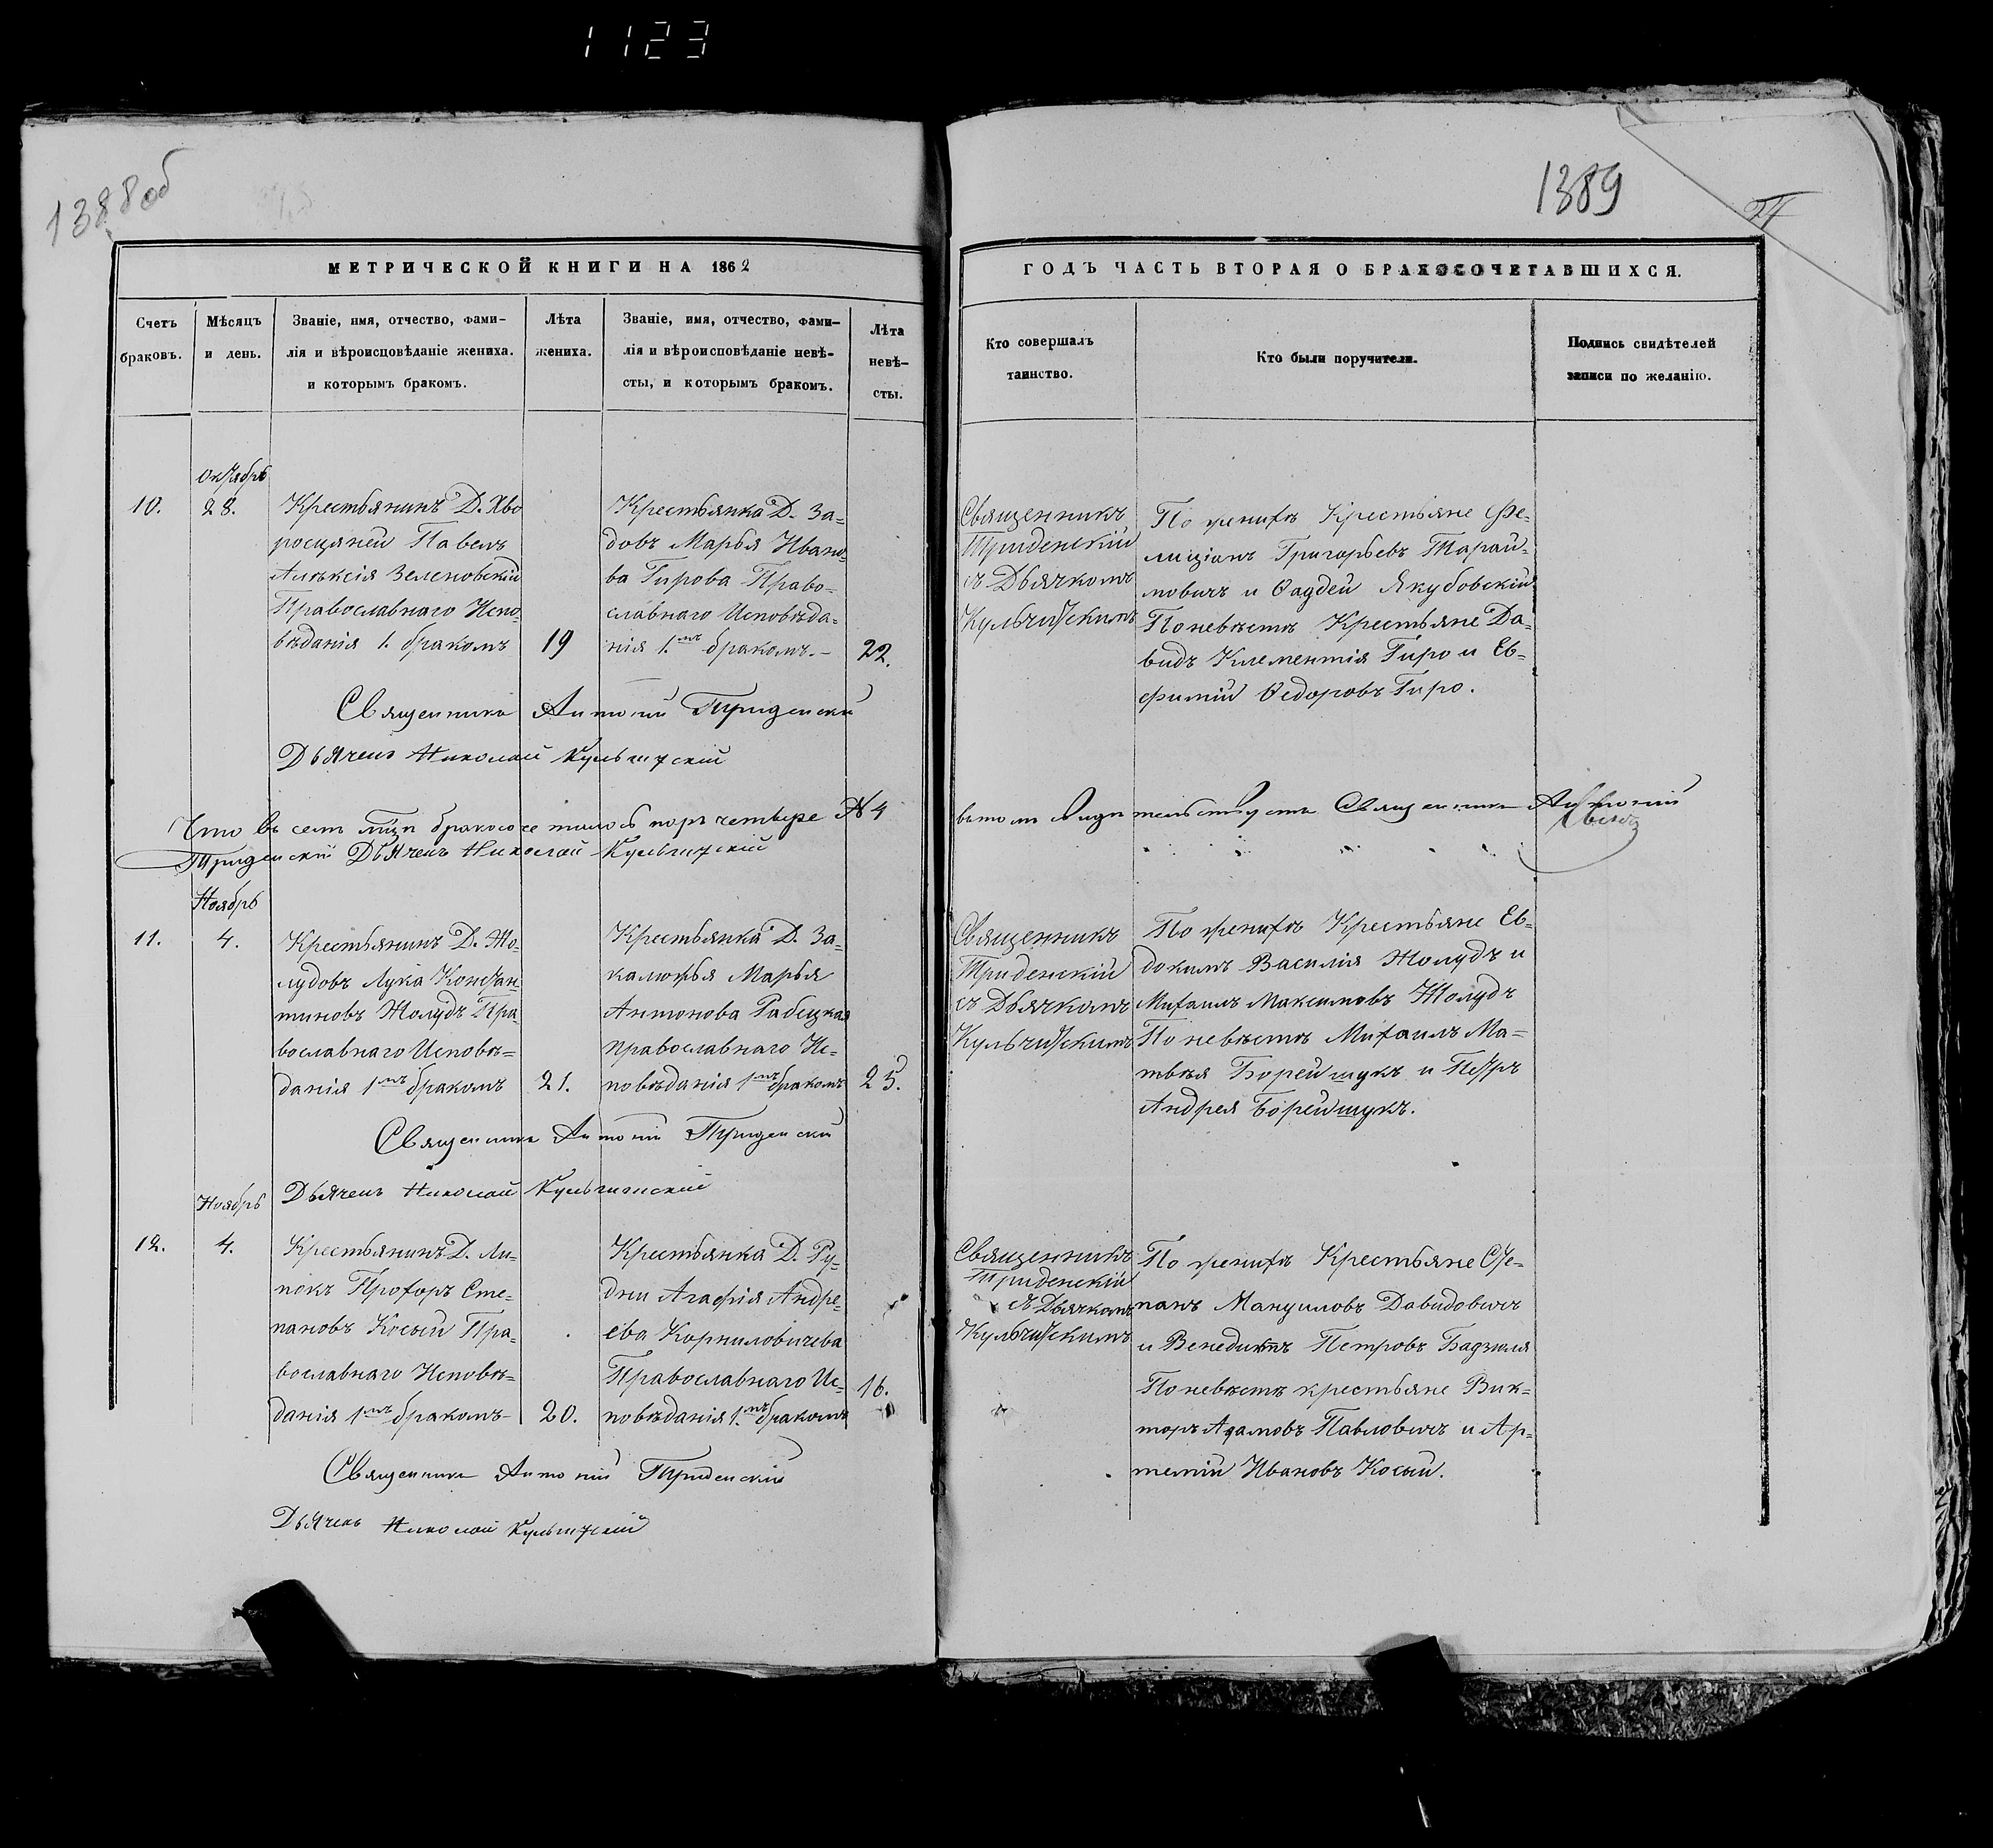 1123
1388об
1389
27
МЕТРИЧЕСКОЙ КНИГИ НА 1862
ГОДЪ ЧАСТЬ ВТОРАЯ О БРАКОСОЧЕТАВШИХСЯ.
Счетъ
браковъ.
Мѣсяцъ
и день.
Званіе, имя, отчество, фами-
лія и вѣроисповѣданіе жениха.
и которымъ бракомъ.
Лѣта
жениха.
Званіе, имя, отчество, фами-
лія и вѣроисповѣданіе невѣ-
сты, и которымъ бракомъ.
Лѣта
невѣ-
сты.
Кто совершалъ
таинство.
Кто были поручители.
Подпись свидѣтелей
записи по желанію.
10.
Октябрь
28.
Крестьянинъ Д. Хво
росцяней Павелъ
Алѣксія Зеленовскій
Православнаго Испо-
вѣданія 1. бракомъ
19
Крестьянка Д. За-
довъ Марья Ивано-
ва Гирова Право-
славнаго Исповѣда-
нія 1.мъ бракомъ.-
22.
Священникъ
Триденскій
съ Дьячкомъ
Кульчитскимъ
По женихѣ Крестьяне Фе-
лиціанъ Григорьевъ Тарай-
мовичъ и Ѳаддей Якубовскій
По невѣстѣ Крестьяне Да-
видъ Клементія Гиро и Ев-
фимій Ѳедоровъ Гиро.
Священникъ Антоній Триденскій
Дьячекъ Николай Кульчитскій
Что въ семъ м-цѣ бракосочеталось паръ четыре № 4
въ томъ свидѣтельствуетъ Священникъ Антоній
Триденскій Дьячекъ Николай Кульчитскій
11.
Ноябрь
4.
Крестьянинъ Д. Жо-
лудовъ Лука Констан-
тиновъ Жолудъ Пра-
вославнаго Исповѣ-
данія 1мъ бракомъ
21.
Крестьянка Д. За-
калюжья Марья
Антонова Рабецкая
православнаго Ис-
повѣданія 1мъ бракомъ
25.
Священникъ
Триденскій
съ Дьячкомъ
Кульчитскимъ
По женихѣ Крестьяне Ев-
докимъ Василія Жолудъ и
Михаилъ Максимовъ Жолудъ
По невѣстѣ Михаилъ Ма-
твѣя Борейшукъ и Петръ
Андрея Борейшукъ.
Священникъ Антоній Триденскій
Дьячекъ Николай Кульчитскій
12.
Ноябрь
4.
Крестьянинъ Д. Ли-
покъ Прохоръ Сте-
пановъ Косый Пра-
вославнаго Исповѣ-
данія 1мъ бракомъ-
20.
Крестьянка Д. Ру-
дни Агафія Андре-
ева Корниловичева
Православнаго Ис-
повѣданія 1.мъ бракомъ
16.
Священникъ
Триденскій
съ Дьячкомъ
Кульчитскимъ
По женихѣ Крестьяне Сте-
панъ Мануиловъ Давидовичъ
и Венедиктъ Петровъ Бадзиля
По невѣстѣ крестьяне Вик-
торъ Адамовъ Павловичъ и Ар-
темій Ивановъ Косый.
Священникъ Антоній Триденскій
Дьячекъ Николай Кульчитскій